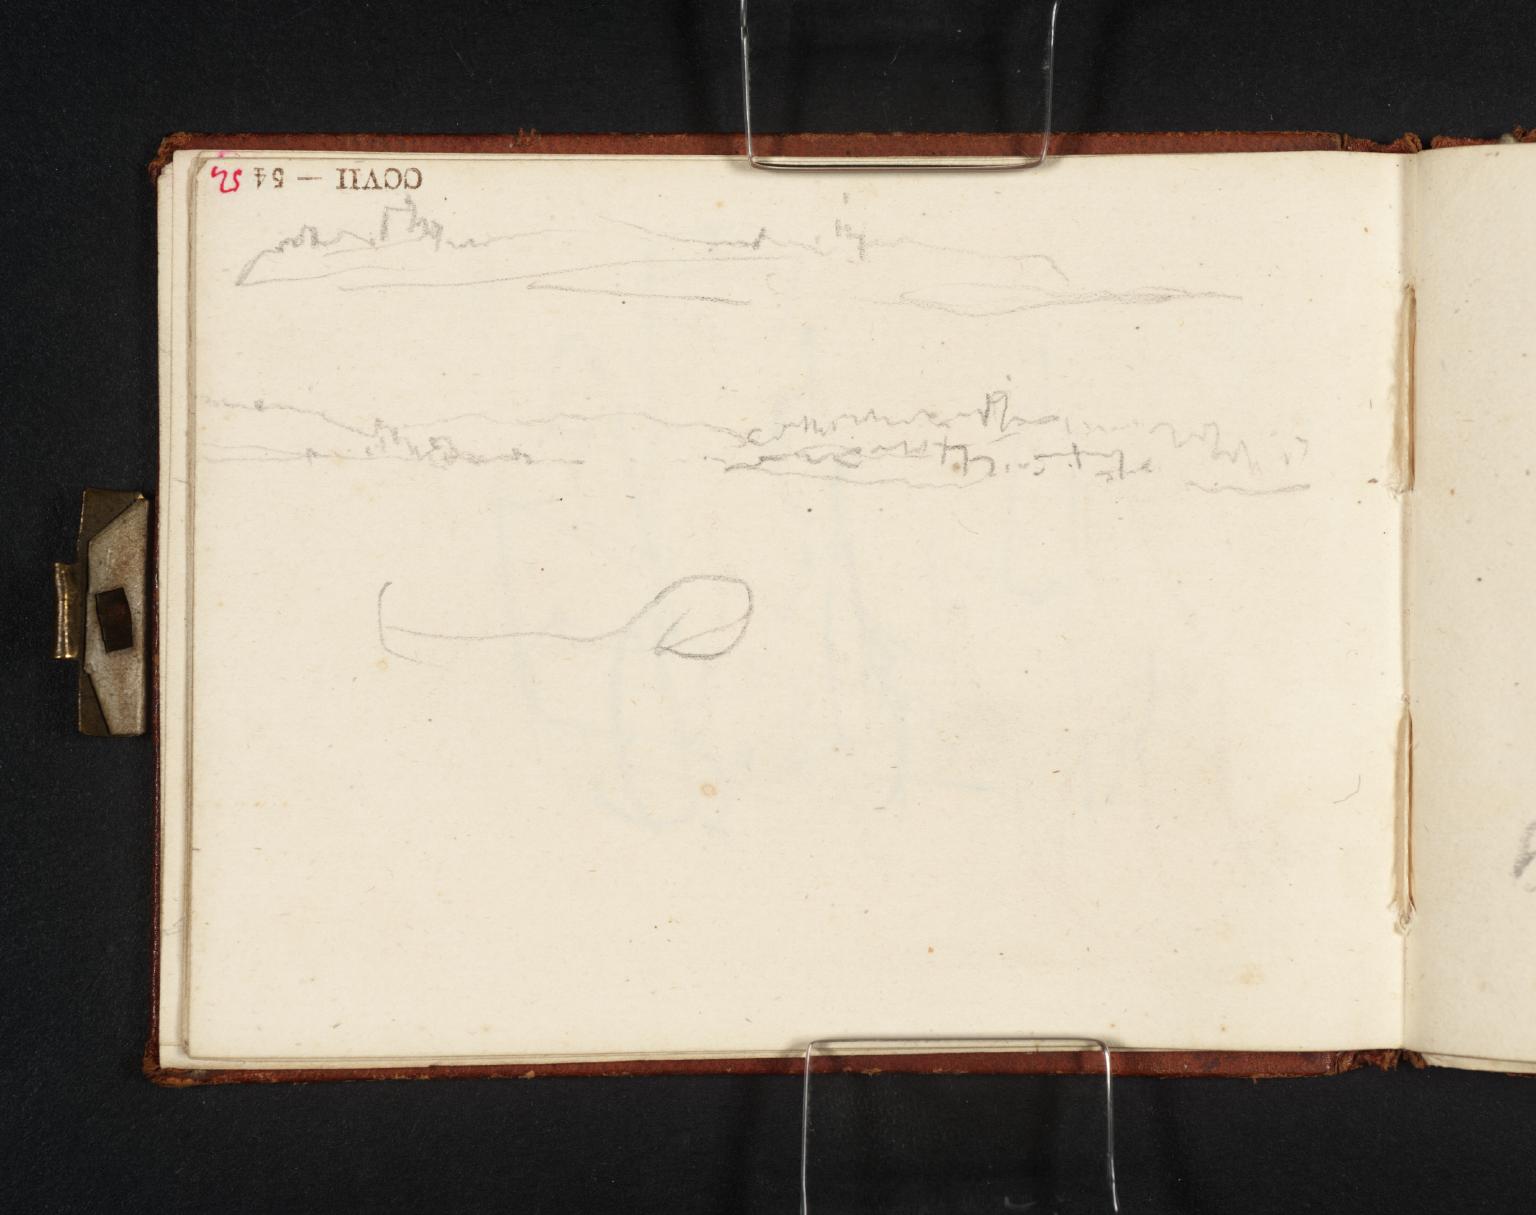 CCVII — 54 54